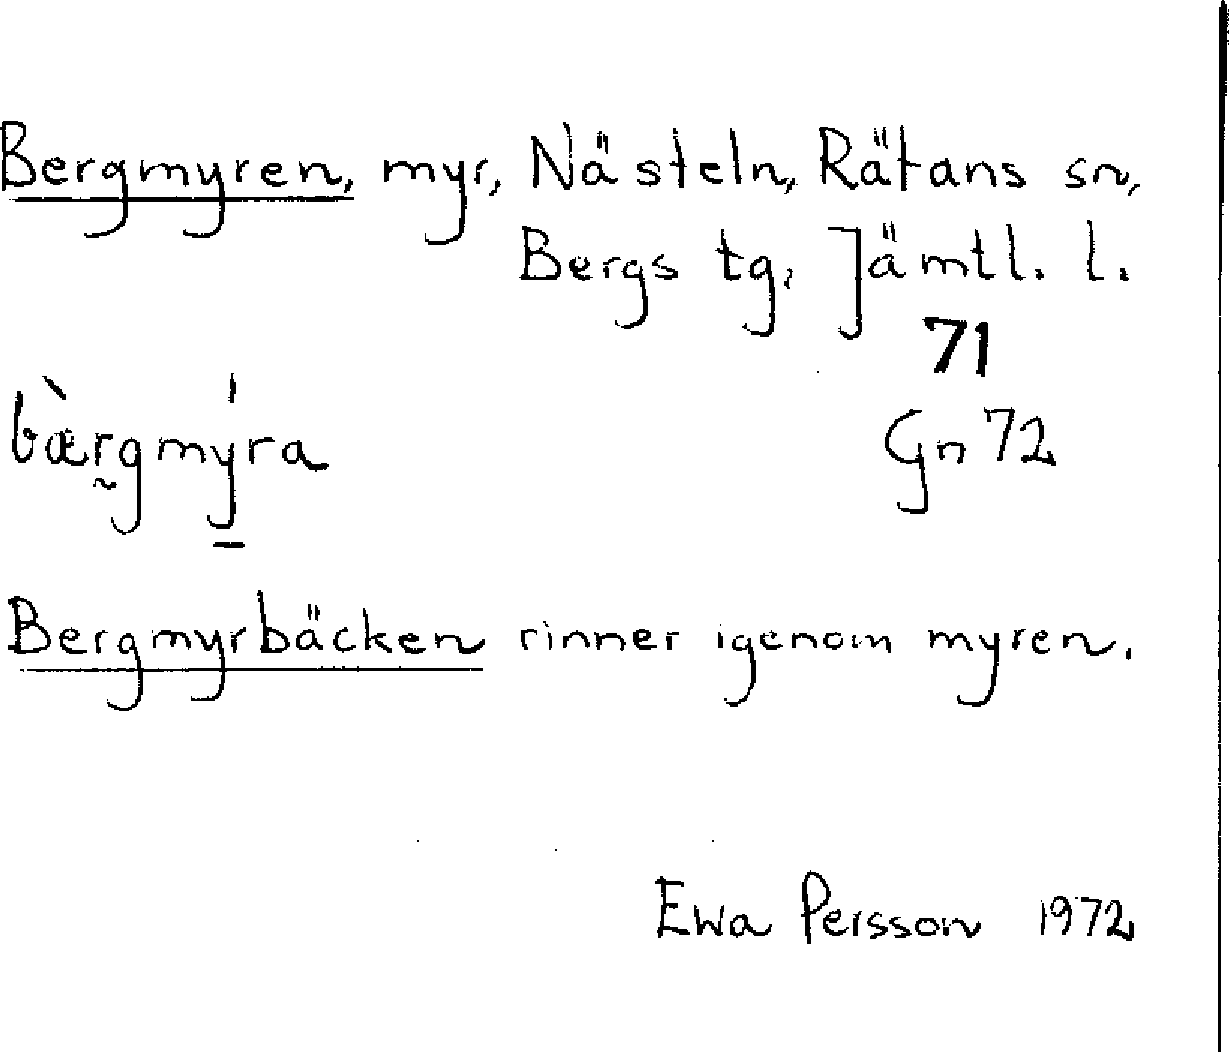 Bergmyren, myr, Nästeln, Rätans sn,
Bergs tg, Jämtl. l.
71
bæ̀r̰gmý̠ra
Gn 72
Bergmyrbäcken rinner igenom myren.
Ewa Persson 1972